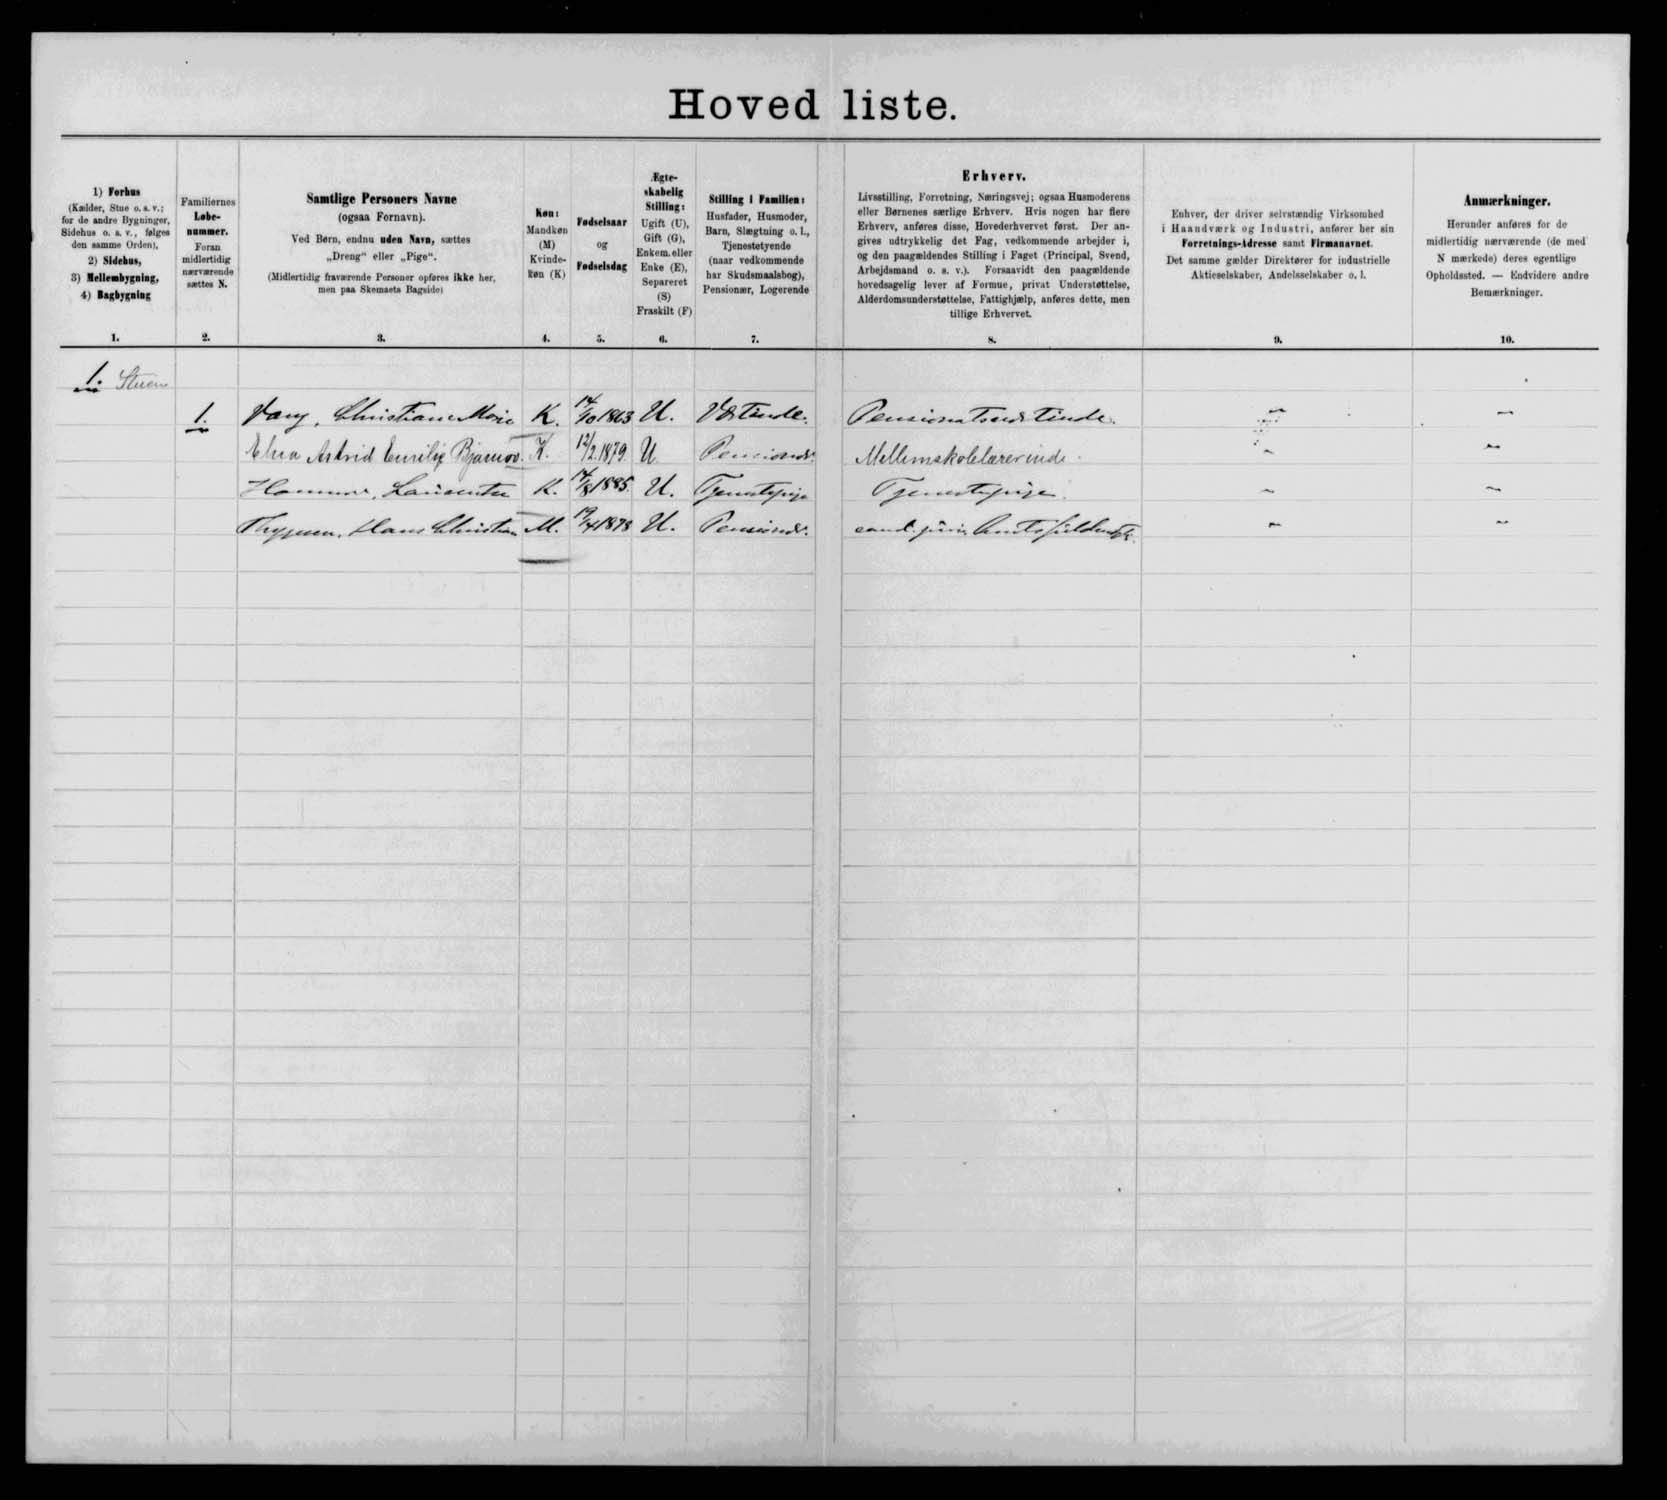 Hoved liste.
1) Forhus
(Kælder, Stue o. s. v.;
for de andre Bygninger,
Sidehus o. s. v., følges
den samme Orden),
2) Sidehus,
3) Mellembygning,
4) Bagbygning
1.
Familiernes
Løbe-
nummer.
Foran
midlertidig
nærværende
sættes N.
2.
Samtlige Personers Navne
(ogsaa Fornavn).
Ved Børn, endnu uden Navn, sættes
„Dreng" eller „Pige".
(Midlertidig fraværende Personer opføres ikke her,
men paa Skemaets Bagside)
3.
Køn:
Mandkøn
(M)
Kvinde-
køn (K)
4.
Fødselsaar
og
Fødselsdag
5.
Ægte-
skabelig
Stilling:
Ugift (U),
Gift (G),
Enkem. eller
Enke (E),
Separeret
(S)
Fraskilt (F)
6.
Stilling i Familien:
Husfader, Husmoder,
Barn, Slægtning o. l.,
Tjenestetyende
(naar vedkommende
har Skudsmaalsbog),
Pensionær, Logerende
7.
Erhverv.
Livsstilling, Forretning, Næringsvej; ogsaa Husmoderens
eller Børnenes særlige Erhverv. Hvis nogen har flere
Erhverv, anføres disse, Hovederhvervet først. Der an-
gives udtrykkelig det Fag, vedkommende arbejder i,
og den paagældendes Stilling i Faget (Principal, Svend,
Arbejdsmand o. s. v.). Forsaavidt den paagældende
hovedsagelig lever af Formue, privat Understøttelse,
Alderdomsunderstøttelse, Fattighjælp, anføres dette, men
tillige Erhvervet.
8.
Enhver, der driver selvstændig Virksomhed
i Haandværk og Industri, anfører her sin
Forretnings-Adresse samt Firmanavnet.
Det samme gælder Direktører for industrielle
Aktieselskaber, Andelsselskaber o. l.
9.
Anmærkninger.
Herunder anføres for de
midlertidig nærværende (de med
N mærkede) deres egentlige
Opholdssted. — Endvidere andre
Bemærkninger.
10.
1. Stuen
1. Vang, Christiane Marie K. 14/10 1863 U. Værtinde. Pensionatsværtinde. — —
Elna Astrid Emilie K. 12/2 1879 U Pensionær. Mellemskolelærerinde. — —
Hammer, K. 14/8 1885. U. Tjenestepige Tjenestepige. — —
Thygesen, Hans Christian M. 19/4 1878 U. Pensionær. cand. juris, — —